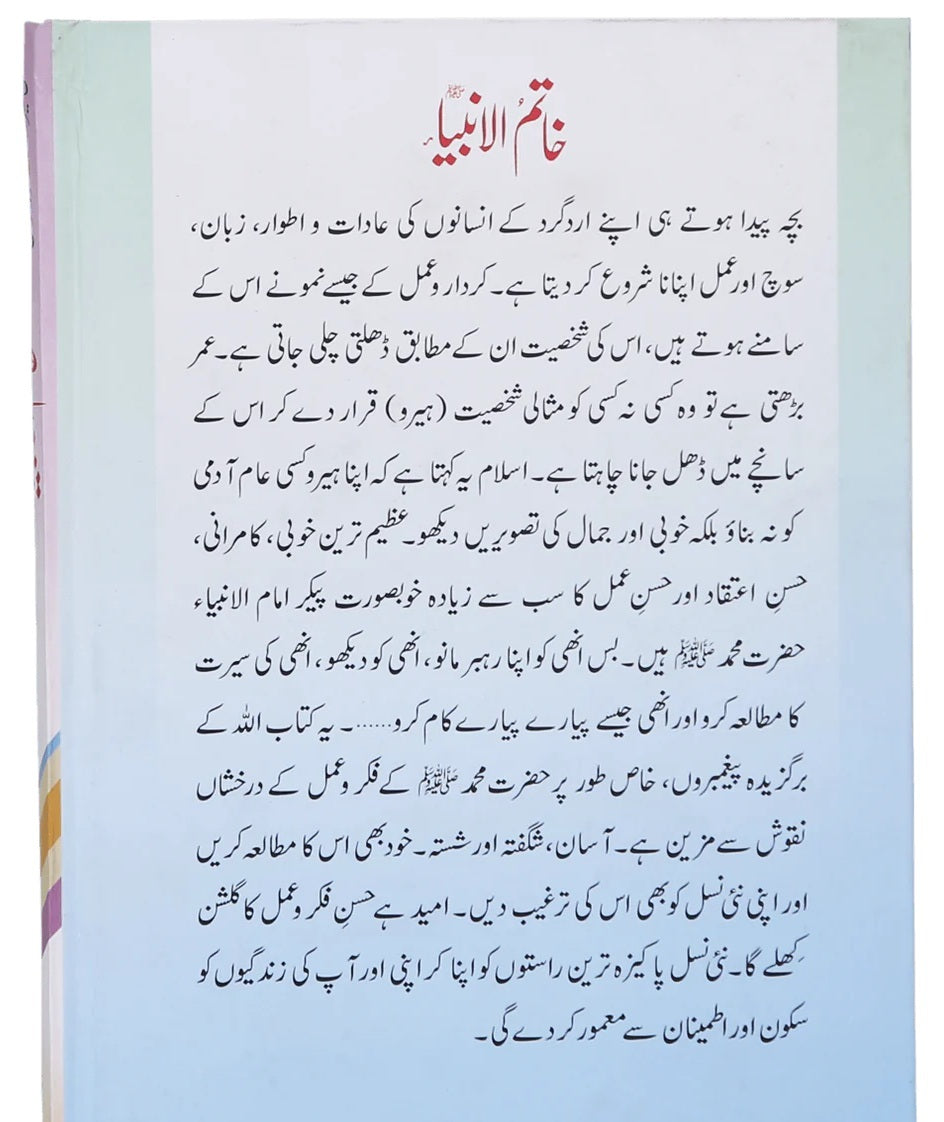 خاتمُ الانبیاء ﷺ
بچہ پیدا ہوتے ہی اپنے اردگرد کے انسانوں کی عادات و اطوار، زبان،
سوچ اور عمل اپنانا شروع کر دیتا ہے۔ کردار و عمل کے جیسے نمونے اس کے
سامنے ہوتے ہیں، اس کی شخصیت ان کے مطابق ڈھلتی چلی جاتی ہے۔ عمر
بڑھتی ہے تو وہ کسی نہ کسی کو مثالی شخصیت (ہیرو) قرار دے کر اس کے
سانچے میں ڈھل جانا چاہتا ہے۔ اسلام یہ کہتا ہے کہ اپنا ہیرو کسی عام آدمی
کو نہ بناؤ بلکہ خوبی اور جمال کی تصویریں دیکھو۔ عظیم ترین خوبی، کامرانی،
حسنِ اعتقاد اور حسنِ عمل کا سب سے زیادہ خوبصورت پیکر امام الانبیاء
حضرت محمد ﷺ ہیں۔ بس انھی کو اپنا رہبر مانو، انھی کو دیکھو، انھی کی سیرت
کا مطالعہ کرو اور انھی جیسے پیارے پیارے کام کرو......۔ یہ کتاب اللہ کے
برگزیدہ پیغمبروں، خاص طور پر حضرت محمد ﷺ کے فکر و عمل کے درخشاں
نقوش سے مزین ہے۔ آسان، شگفتہ اور شستہ۔ خود بھی اس کا مطالعہ کریں
اور اپنی نئی نسل کو بھی اس کی ترغیب دیں۔ امید ہے حسنِ فکر و عمل کا گلشن
کِھلے گا۔ نئی نسل پاکیزہ ترین راستوں کو اپنا کر اپنی اور آپ کی زندگیوں کو
سکون اور اطمینان سے معمور کر دے گی۔